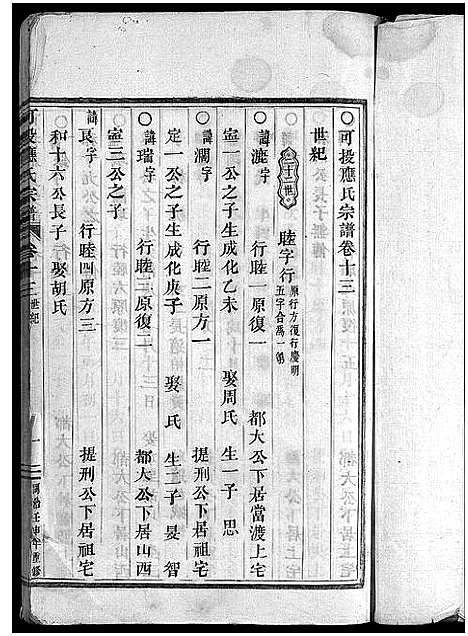 ○可投應氏宗譜卷十三
世紀
二十二世 睦字行 原行方復行慶明五字合爲一
○諱漉字 行睦一原復一 都大公下居當渡上宅
寗一公之子生成化乙未 娶周氏 生一子 思
○諱瀾字 行睦二原方一 提刑公下居祖宅
定一公之子生成化庚子 娶 氏 生二子 旻 智
○諱瑞字 行睦三原復二 都大公下居山西
寗三公之子
○諱良字 行睦四原方三 提刑公下居祖宅
和十六公長子 娶胡氏
可投應氏宗譜 卷十三 世紀 一 同治壬申年重修